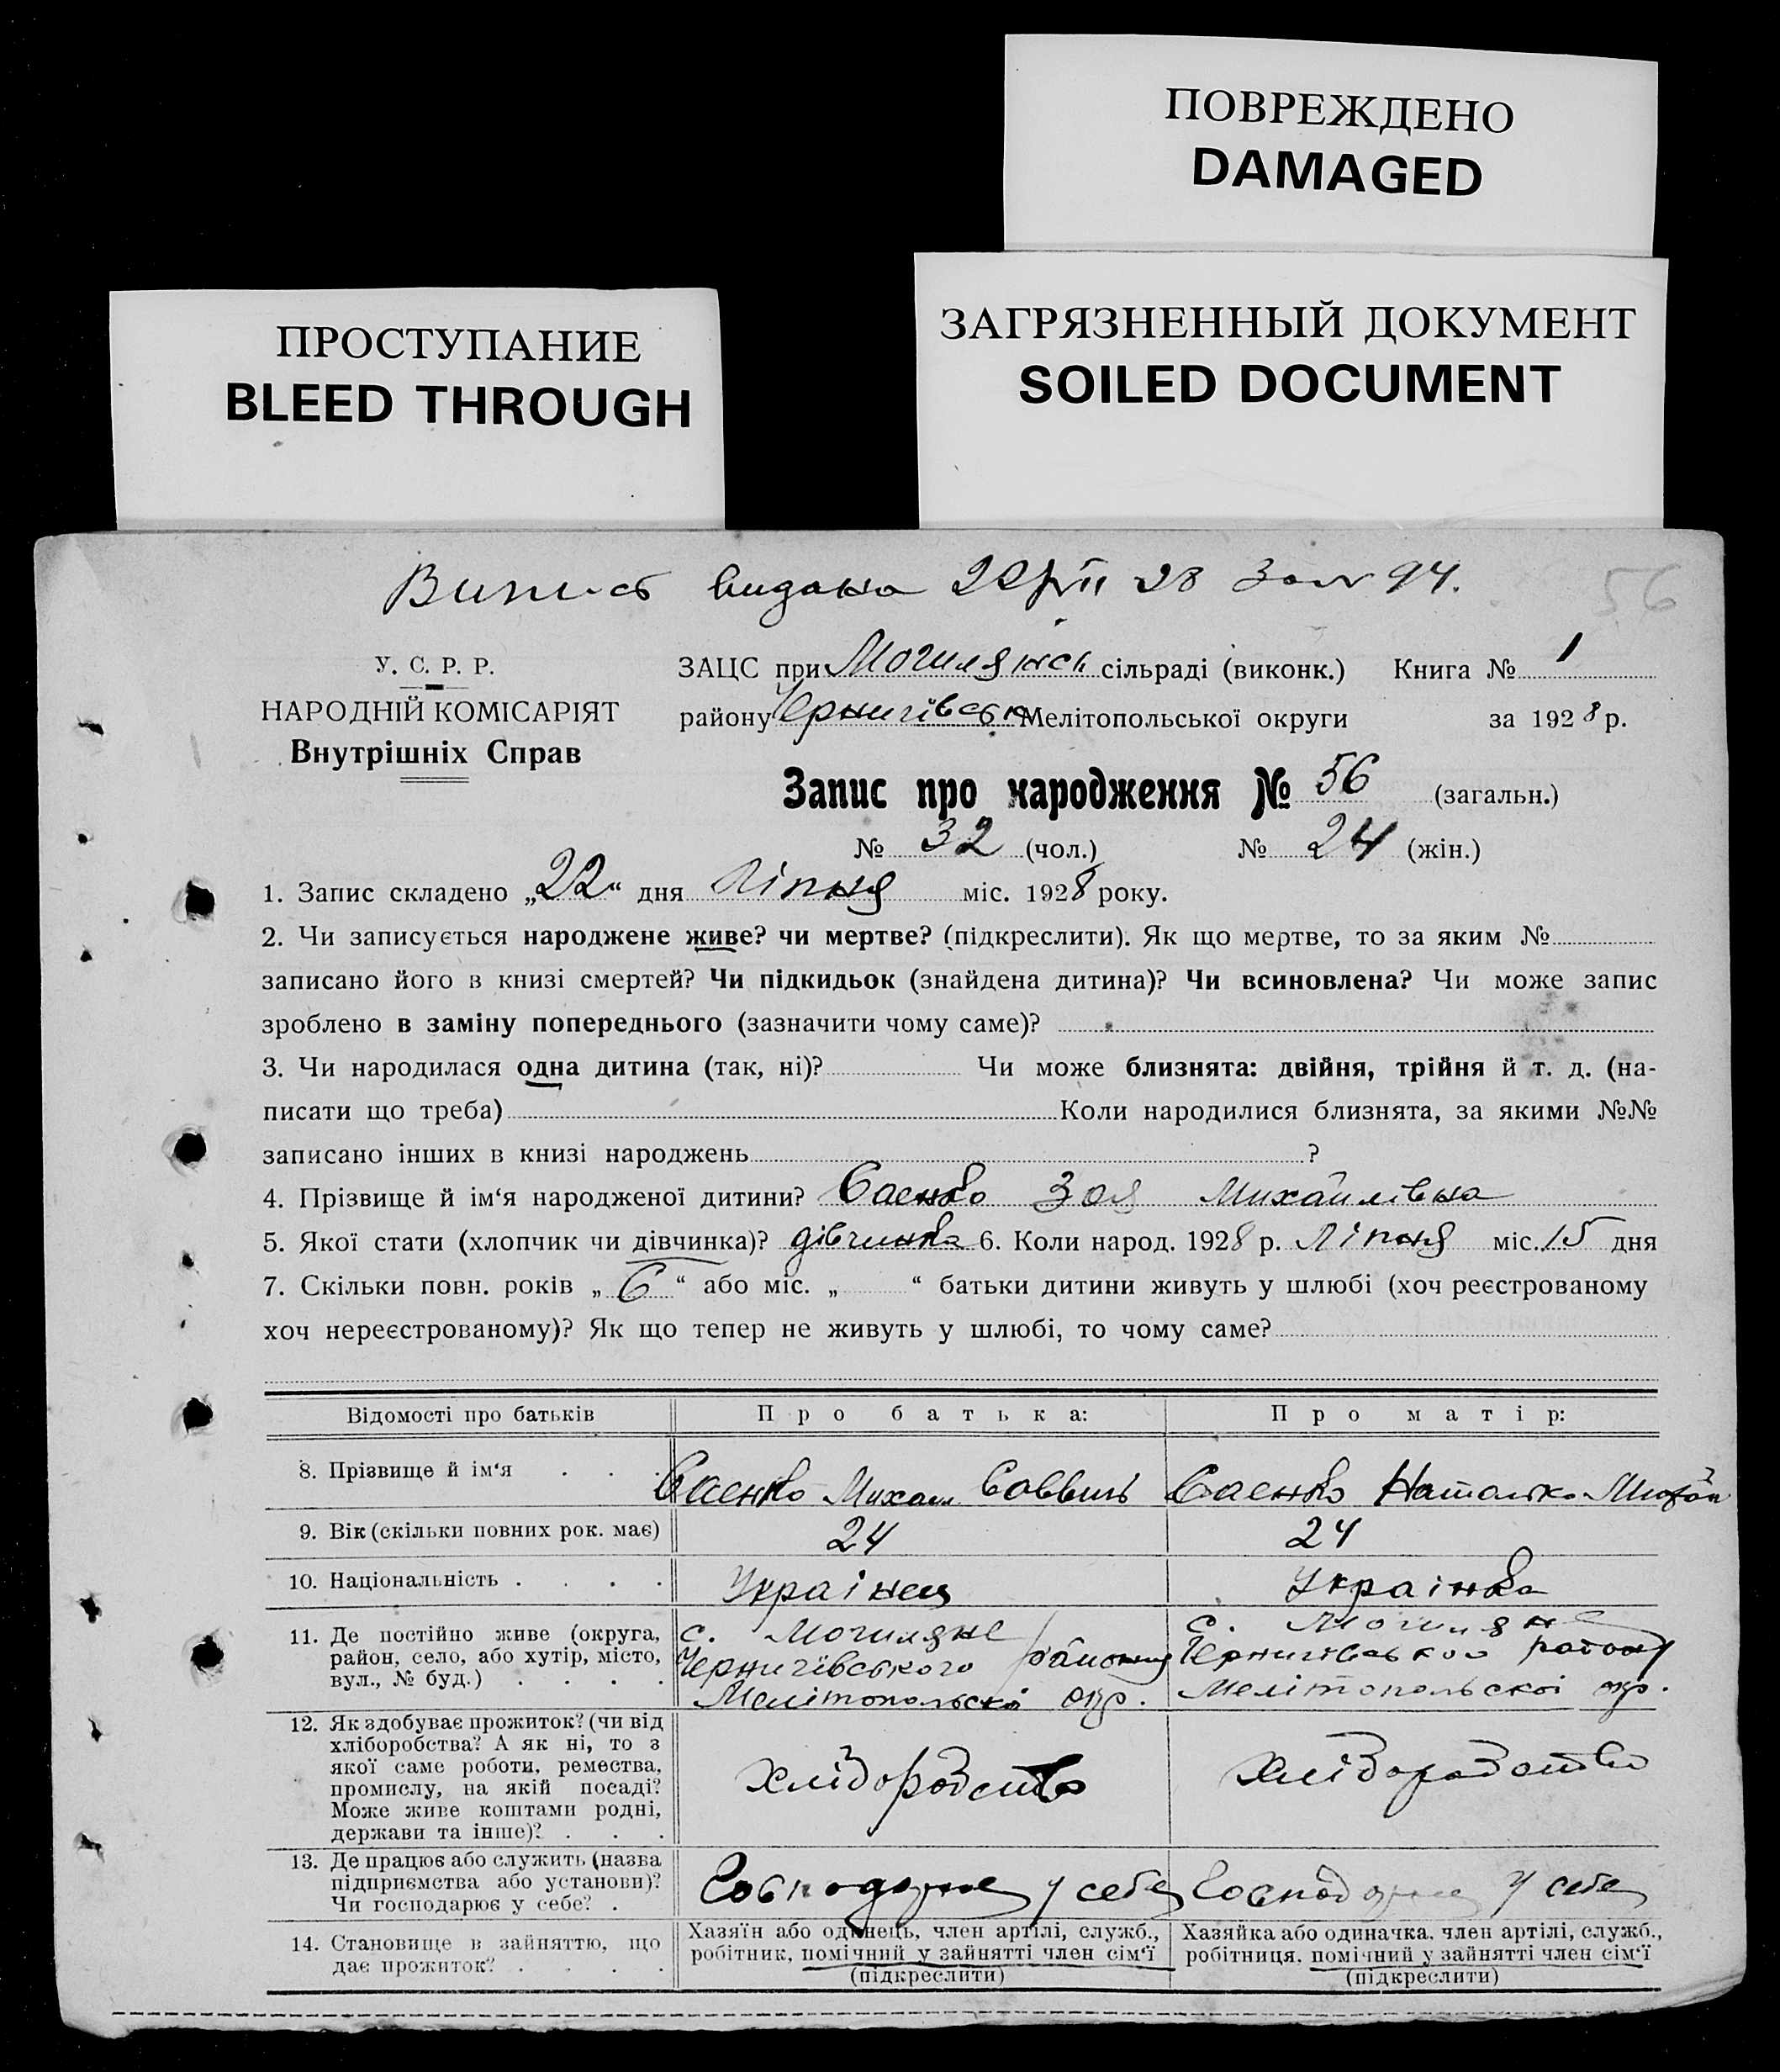 ПОВРЕЖДЕНО
DAMAGED
ПРОСТУПАНИЕ
BLEED THROUGH
ЗАГРЯЗНЕННЫЙ ДОКУМЕНТ
SOILED DOCUMENT
Випись видана 22/VII 28 за № 94.
56
У. С. Р. Р.
НАРОДНІЙ КОМІСАРІЯТ
Внутрішніх Справ
ЗАЦС при Могилянськ сільраді (виконк.) Книга № 1
району Чернигівськ Мелітопольської округи за 1928 р.
Запис про народження № 56 (загальн.)
№ 32 (чол.) № 24 (жін.)
1. Запис складено „22“ дня Ліпня міс. 1928 року.
2. Чи записується народжене живе? чи мертве? (підкреслити). Як що мертве, то за яким №
записано його в книзі смертей? Чи підкидьок (знайдена дитина)? Чи всиновлена? Чи може запис
зроблено в заміну попереднього (зазначити чому саме)?
3. Чи народилася одна дитина (так, ні)? Чи може близнята: двійня, трійня й т. д. (на-
писати що треба) Коли народилися близнята, за якими №№
записано інших в книзі народжень ?
4. Прізвище й ім‘я народженої дитини? Саенко Зоя Михайлівна
5. Якої стати (хлопчик чи дівчинка)? дівчинка 6. Коли народ. 1928 р. Ліпня міс. 15 дня
7. Скільки повн. років „6“ або міс. „ “ батьки дитини живуть у шлюбі (хоч реєстрованому
хоч нереєстрованому)? Як що тепер не живуть у шлюбі, то чому саме?
Відомості про батьків Про батька: Про матір:
8. Прізвище й ім‘я . . . Саенко Михаил Саввич Саенко Наталка
9. Вік (скільки повних рок. має) 24 24
10. Національність . . . . Украінец Украінка
11. Де постійно живе (округа,
район, село, або хутір, місто,
вул., № буд.) . . . .
с. Могиляне
Чернигівського району
Мелітопольскоі окр.
с. Могиляне
Чернигівського району
Мелітопольскоі окр.
12. Як здобуває прожиток? (чи від
хліборобства? А як ні, то з
якої саме роботи, ремества,
промислу, на якій посаді?
Може живе коштами родні,
держави та інше)? . . .
хліборобство хліборобство
13. Де працює або служить (назва
підприємства або установи)?
Чи господарює у себе? .
Господарює у себе Господарює у себе
14. Становище в зайняттю, що
дає прожиток? . . . .
Хазяїн або одинець, член артілі, служб.,
робітник, помічний у зайнятті член сім‘ї
(підкреслити)
Хазяйка або одиначка, член артілі, служб.,
робітниця, помічний у зайнятті член сім‘ї
(підкреслити)